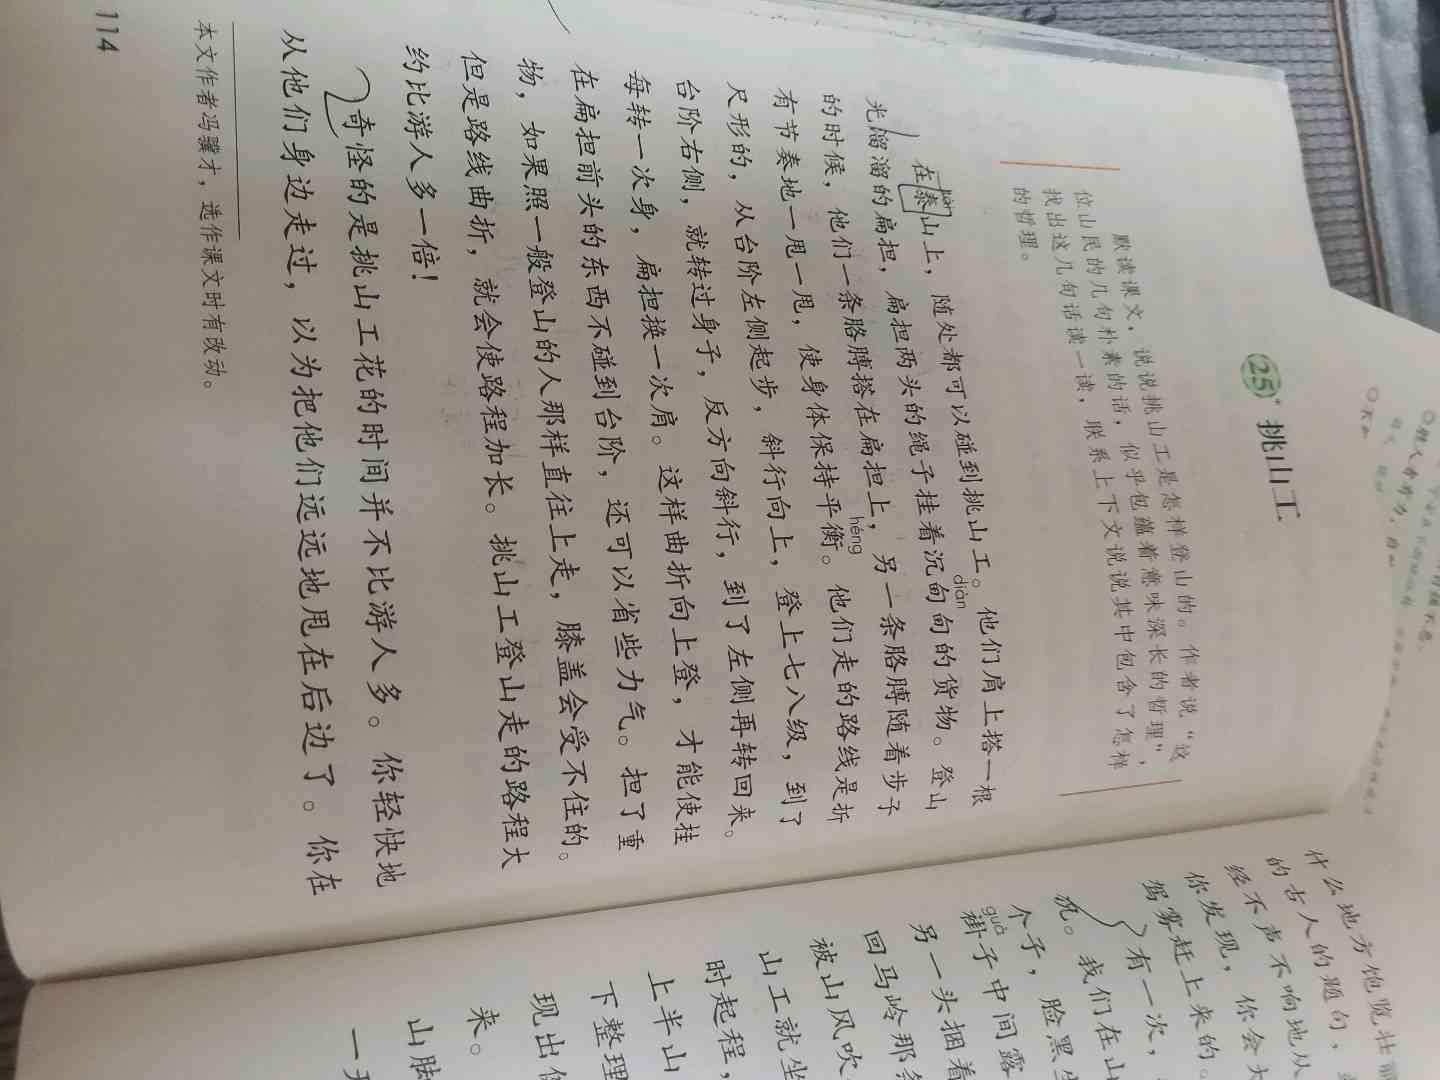 25* 挑山工
默读课文，说说挑山工是怎样登山的。作者说“这
位山民的几句朴素的话，似乎包蕴着意味深长的哲理”，
找出这几句话读一读，联系上下文说说其中包含了怎样
的哲理。
在泰山上，随处都可以碰到挑山工。他们肩上搭一根
diàn
光溜溜的扁担，扁担两头的绳子挂着沉甸甸的货物。登山
的时候，他们一条胳膊搭在扁担上，另一条胳膊随着步子
héng
有节奏地一甩一甩，使身体保持平衡。他们走的路线是折
尺形的，从台阶左侧起步，斜行向上，登上七八级，到了
台阶右侧，就转过身子，反方向斜行，到了左侧再转回来。
每转一次身，扁担换一次肩。这样曲折向上登，才能使挂
在扁担前头的东西不碰到台阶，还可以省些力气。担了重
物，如果照一般登山的人那样直往上走，膝盖会受不住的。
但是路线曲折，就会使路程加长。挑山工登山走的路程大
约比游人多一倍！
奇怪的是挑山工花的时间并不比游人多。你轻快地
从他们身边走过，以为把他们远远地甩在后边了。你在
本文作者冯骥才，选作课文时有改动。
114
什么地方饱览壮丽
的古人的题句，
经不声不响地从
你发现，你会大
驾雾赶上来的。
有一次，
九。我们在山
个子，脸黑
guà
褂子中间露
另一头捆着
回马岭那条
被山风吹
山工就坐
时起程，
上半山
下整理
现出
来。
山脚
一